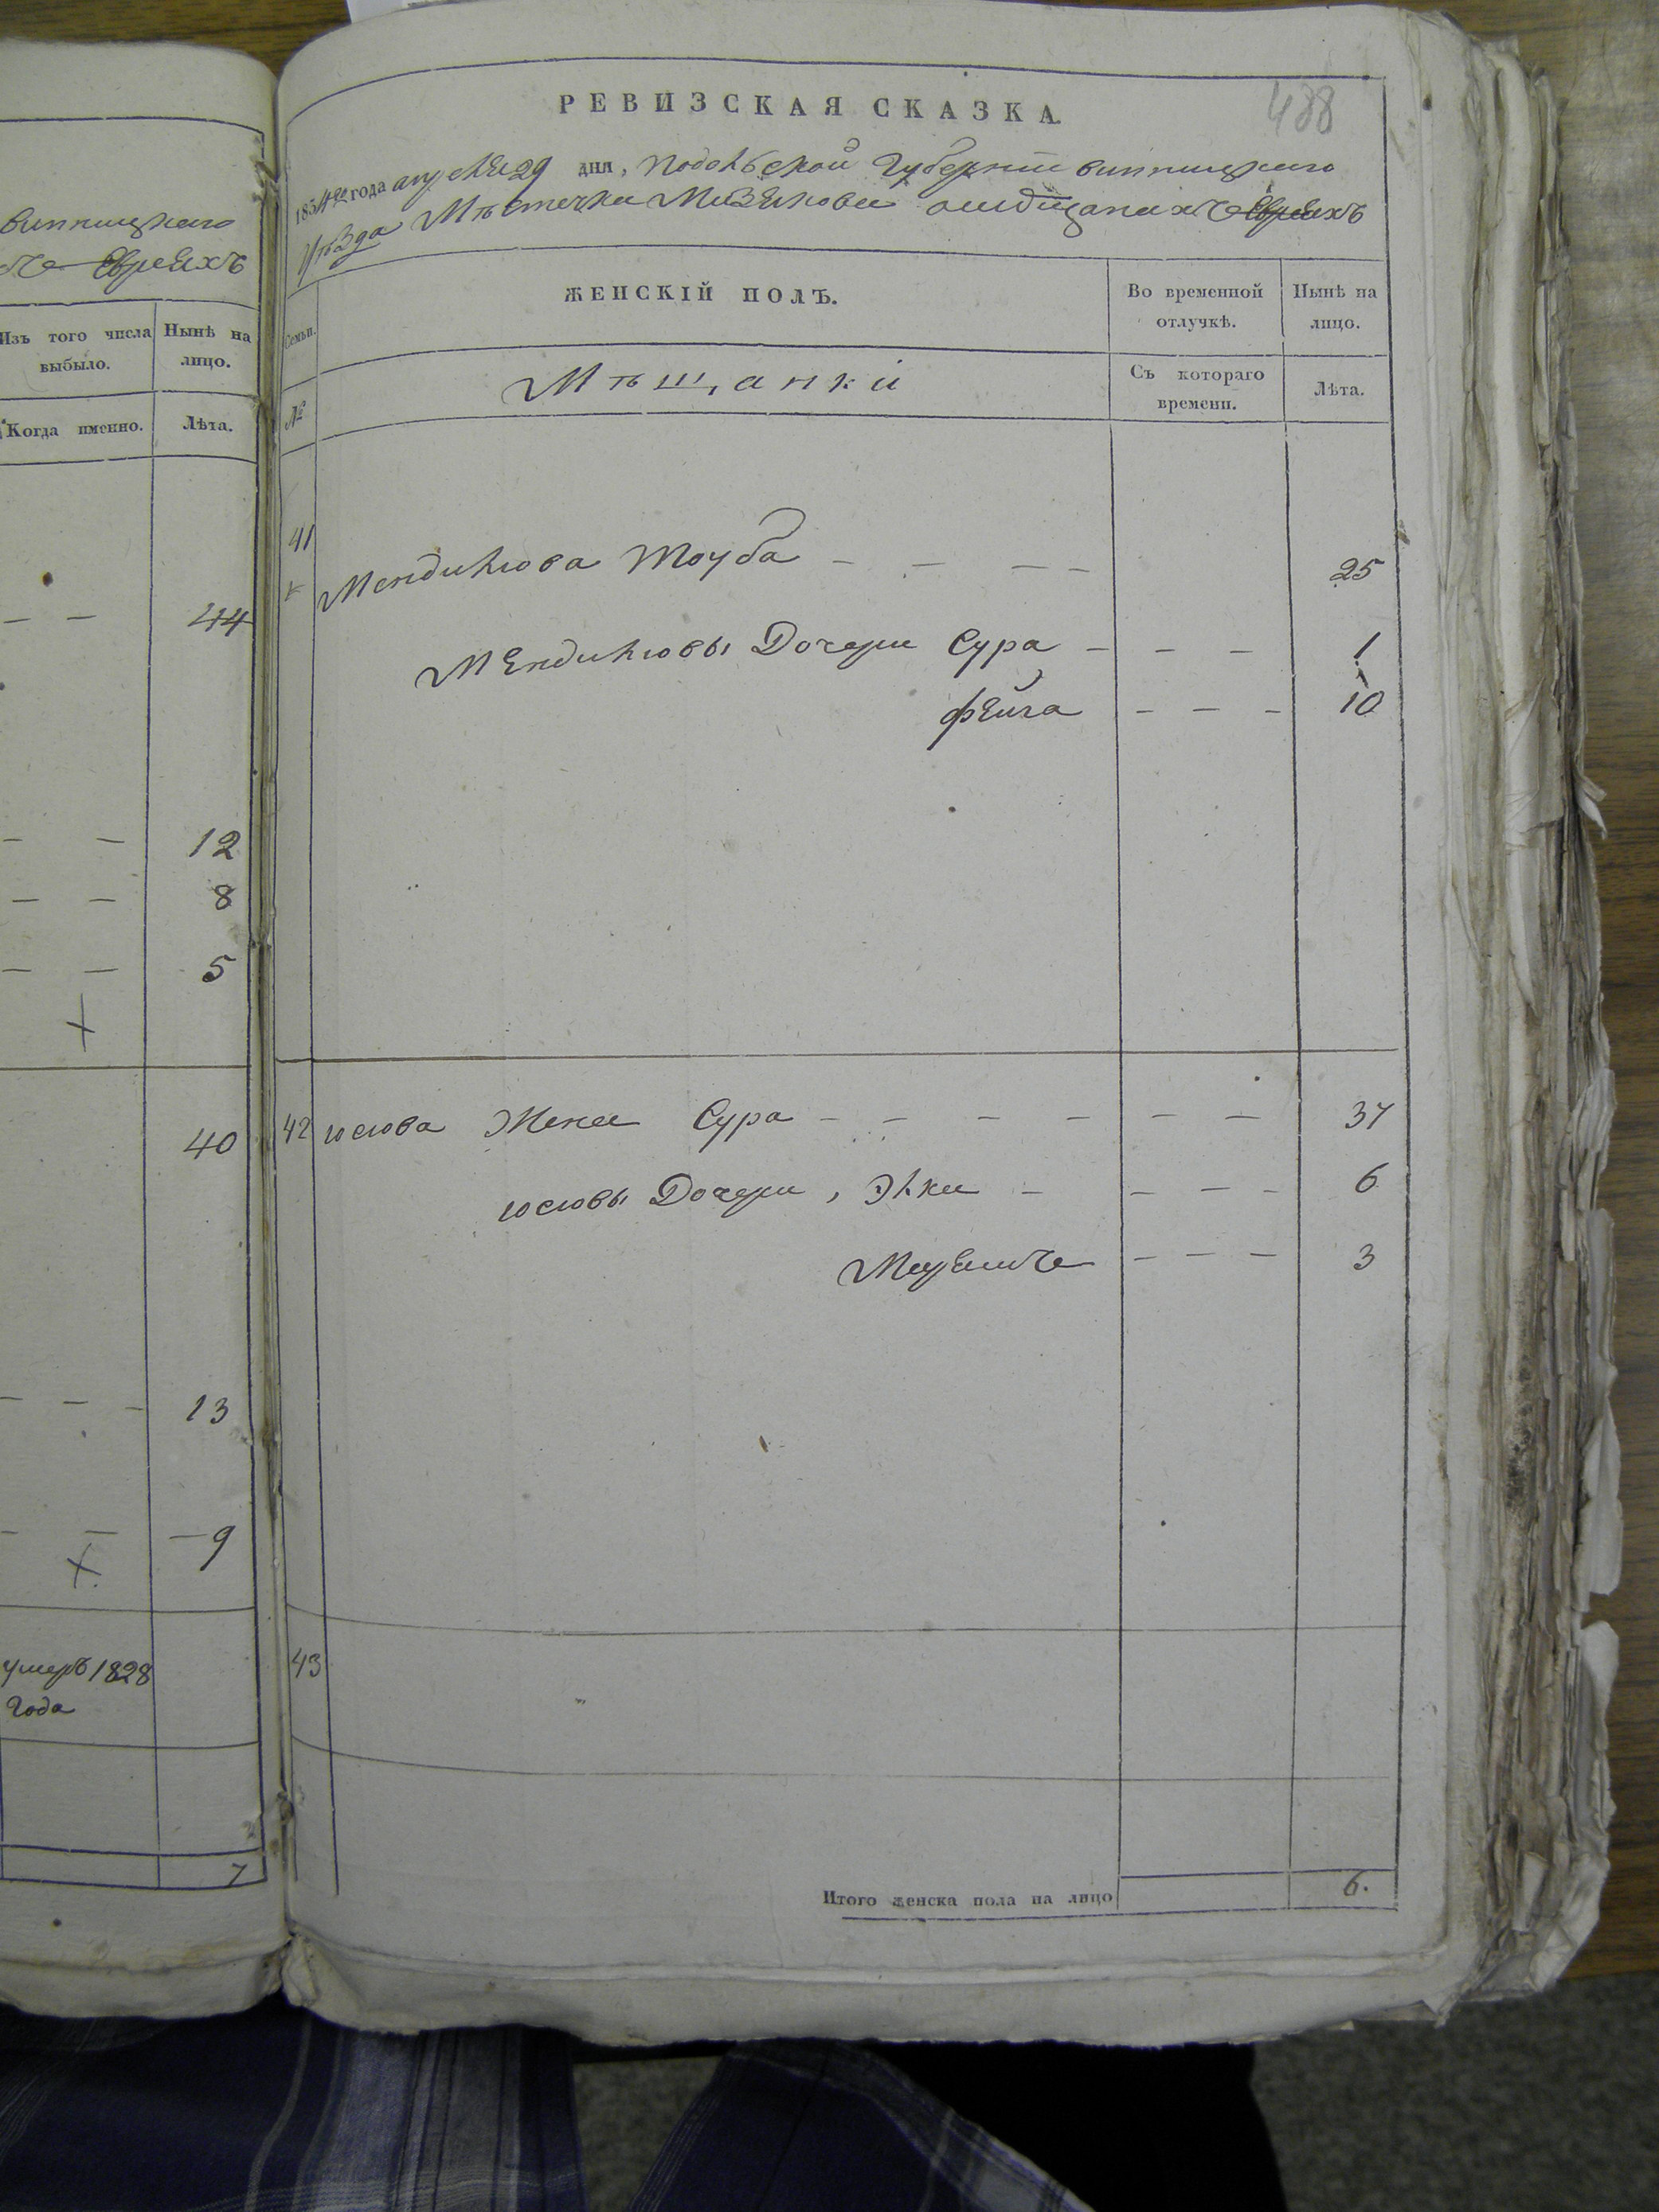 Винницкаго
хъ Евреяхъ
Изъ того числа выбыло.
Нынѣ на лицо.
Когда именно.
Лѣта.
— — 44
— — 12
— — 8
— — 5
40
— — — 13
— — — 9
умеръ 1828
года
7
438
РЕВИЗСКАЯ СКАЗКА.
1834го года апреля 29 дня, Подольской Губернии Винницкаго
уѣзда Мѣстечка Мизякова о мѣщанахъ Евреяхъ
Семьи.
ЖЕНСКІЙ ПОЛЪ.
Во временной отлучкѣ.
Нынѣ на лицо.
№
Мѣщанки
Съ котораго времени.
Лѣта.
41
Мендилюва Тоуба — — — — 25
Мендилювы Дочери Сура — — — 1
Фейга — — — 10
42 Юсюва Жена Сура — — — — — — 37
Юсювы Дочери, Элка — — — — 6
— — — 3
43
Итого женска пола на лицо 6.